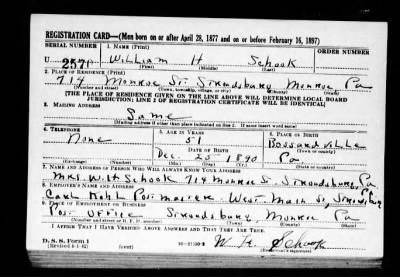 REGISTRATION CARD—(Men born on or after April 28, 1877 and on or before February 16, 1897)
SERIAL NUMBER 1. NAME (Print) ORDER NUMBER
U 257 William H Schook
(First) (Middle) (Last)
2. PLACE OF RESIDENCE (Print)
714 Monroe St. Stroudsburg Monroe Pa
(Number and street) (Town, township, village, or city) (County) (State)
[THE PLACE OF RESIDENCE GIVEN ON THE LINE ABOVE WILL DETERMINE LOCAL BOARD
JURISDICTION; LINE 2 OF REGISTRATION CERTIFICATE WILL BE IDENTICAL]
3. MAILING ADDRESS
Same
(Mailing address if other than place indicated on line 2. If same insert word same)
4. TELEPHONE 5. AGE IN YEARS 6. PLACE OF BIRTH
None 51 Bossardville
DATE OF BIRTH (Town or county)
Dec. 25 1890 Pa
(Exchange) (Number) (Mo.) (Day) (Yr.) (State or country)
7. NAME AND ADDRESS OF PERSON WHO WILL ALWAYS KNOW YOUR ADDRESS
Mrs. W. H. Schook 714 Monroe St. Stroudsburg Pa
8. EMPLOYER'S NAME AND ADDRESS
Carl Postmaster West Main St, Stroudsburg Pa
9. PLACE OF EMPLOYMENT OR BUSINESS
Post Office Stroudsburg, Monroe Pa
(Number and street or R. F. D. number) (Town) (County) (State)
I AFFIRM THAT I HAVE VERIFIED ABOVE ANSWERS AND THAT THEY ARE TRUE.
D. S. S. Form 1
(Revised 4-1-42) (over) W. H. Schook